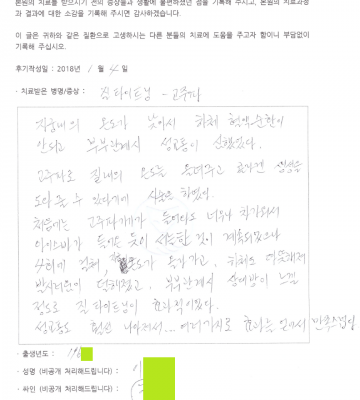 본원의 치료를 받으시기 전의 증상들과 생활에 불편하셨던 점을 기록해 주시고, 본원의 치료과정
과 결과에 대한 소감을 기록해 주시면 감사하겠습니다.
이 글은 귀하와 같은 질환으로 고생하시는 다른 분들의 치료에 도움을 주고자 함이니 부담없이
기록해 주십시오.
후기작성일 : 2018년 / 월 4 일
· 치료받은 병명/증상 : 질 타이트닝 - 고주파
자궁내의 온도가 낮아서 하체 혈액순환이
안되고 부부관계시 성교통이 심했었다.
고주파로 질내의 온도를 올려주고
도와 줄 수 있다기에 시술을 하였다.
처음에는 고주파기계가 들어와도 너무나 차가워서
아이스바가 들어온 듯이 계속되었으나
4회에 걸쳐, 온도가 올라가고, 하체의
부부관계시 상대방이 느낄
정도로 질 타이트닝이 효과적이었다.
성교통도 훨씬 나아져서... 여러가지로 효과를 얻어서
· 출생년도 : 196
· 성명 (비공개 처리해드립니다) :
· 싸인 (비공개 처리해드립니다) :